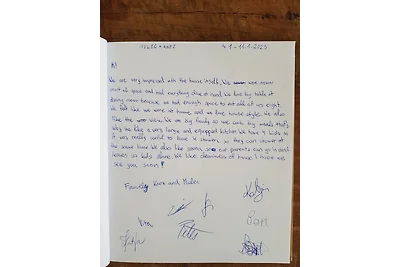 4.1 - 11.1.2023
Hi!
We are very impressed with the house itself. We were never
out of space and had everything close at hand. We love big table at
dining room because we had enough space to eat all of us eight.
We felt like we were at home, and we love house style. We also
like the view. We are big family so we cook big meals that's
why we like a very large and equipped kitchen. We have 4 kids so
it was really useful to have showers so they can shower at
the same time. We also like sauna, so our parents can go in and
leaves us kids alone. We like cleanness of house I hope we
see you soon!
Family and
Petra